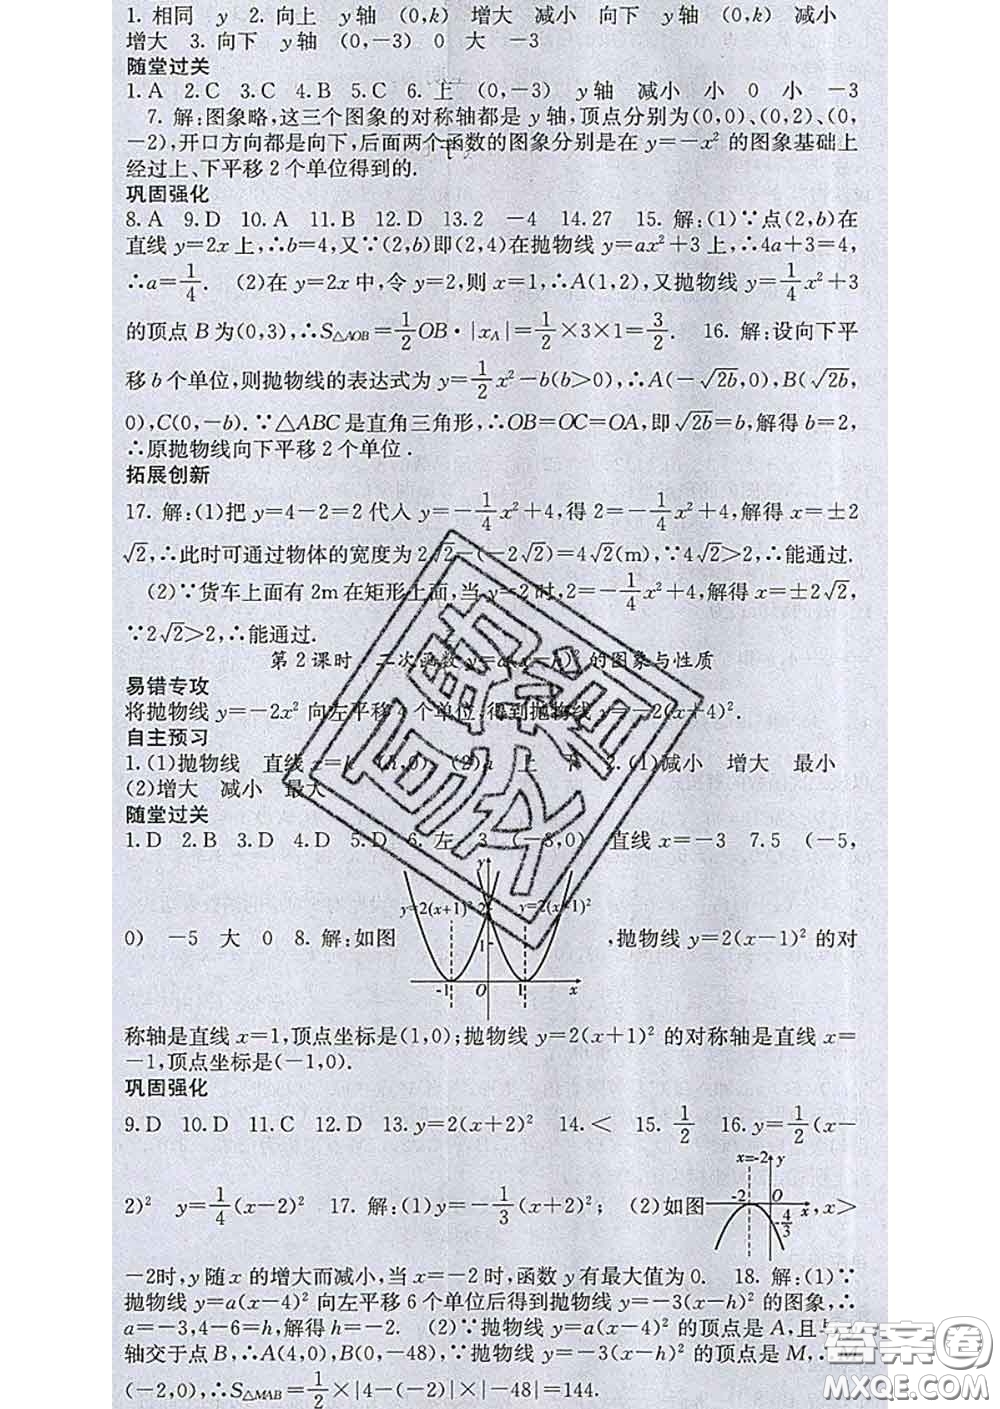 1. 相同 y 2. 向上 y轴 (0,k) 增大 减小 向下 y轴 (0,k) 减小
增大 3. 向下 y轴 (0,-3) 0 大 -3
随堂过关
1. A 2. C 3. C 4. B 5. C 6. 上 (0,-3) y轴 减小 小 0 小 -3
7. 解:图象略,这三个图象的对称轴都是y轴,顶点分别为(0,0)、(0,2)、(0,
-2),开口方向都是向下,后面两个函数的图象分别是在y=-x²的图象基础上
经过上、下平移2个单位得到的.
巩固强化
8. A 9. D 10. A 11. B 12. D 13. 2 -4 14. 27 15. 解:(1)∵点(2,b)在
直线y=2x上,∴b=4,又∵(2,b)即(2,4)在抛物线y=ax²+3上,∴4a+3=4,
∴a=1/4. (2)在y=2x中,令y=2,则x=1,∴A(1,2),又抛物线y=1/4x²+3
的顶点B为(0,3),∴S△AOB=1/2OB·|xA|=1/2×3×1=3/2. 16. 解:设向下平
移b个单位,则抛物线的表达式为y=1/2x²-b(b>0),∴A(-√2b,0),B(√2b,
0),C(0,-b).∵△ABC是直角三角形,∴OB=OC=OA,即√2b=b,解得b=2,
∴原抛物线向下平移2个单位.
拓展创新
17. 解:(1)把y=4-2=2代入y=-1/4x²+4,得2=-1/4x²+4,解得x=±2
√2,∴此时可通过物体的宽度为2√2-(-2√2)=4√2(m),∵4√2>2,∴能通过.
(2)∵货车上面有2m在矩形上面,当y=2时,2=-1/4x²+4,解得x=±2√2,
∵2√2>2,∴能通过.
第2课时 二次函数y=a(x-h)²的图象与性质
易错专攻
将抛物线y=-2x²向左平移 个单位,得到抛物线y=-2(x+4)².
自主预习
1. (1)抛物线 直线x=h (h,0) (2)a 上 2. (1)减小 增大 最小
(2)增大 减小 最大
随堂过关
1. D 2. B 3. D 4. D 5. D 6. 左 3 (-3,0) 直线x=-3 7. 5 (-5,
y
y=2(x+1)² 2 y=2(x-1)²
1
0) -5 大 0 8. 解:如图 ,抛物线y=2(x-1)²的对
-1 O 1 x
称轴是直线x=1,顶点坐标是(1,0);抛物线y=2(x+1)²的对称轴是直线x=
-1,顶点坐标是(-1,0).
巩固强化
9. D 10. D 11. C 12. D 13. y=2(x+2)² 14. < 15. 1/2 16. y=1/2(x-
x=-2 y
-2 O x
-4/3
2)² y=1/4(x-2)² 17. 解:(1)y=-1/3(x+2)²; (2)如图 ,x>
-2时,y随x的增大而减小,当x=-2时,函数y有最大值为0. 18. 解:(1)∵
抛物线y=a(x-4)²向左平移6个单位后得到抛物线y=-3(x-h)²的图象,∴
a=-3,4-6=h,解得h=-2. (2)∵抛物线y=a(x-4)²的顶点是A,且与
轴交于点B,∴A(4,0),B(0,-48),∵抛物线y=-3(x-h)²的顶点是M,∴M
(-2,0),∴S△MAB=1/2×|4-(-2)|×|-48|=144.
答案圈
MXQE.COM